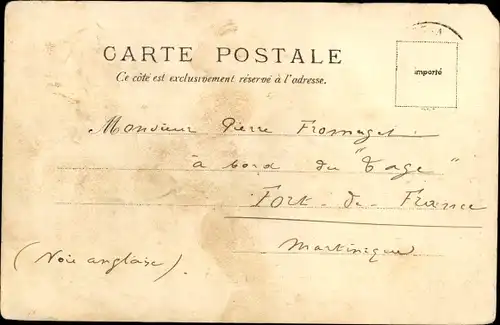 CARTE POSTALE
Ce côté est exclusivement réservé à l'adresse.
importé
Monsieur Pierre Fromaget
à bord du "Tage"
Fort-de-France
Martinique
(Voie anglaise)